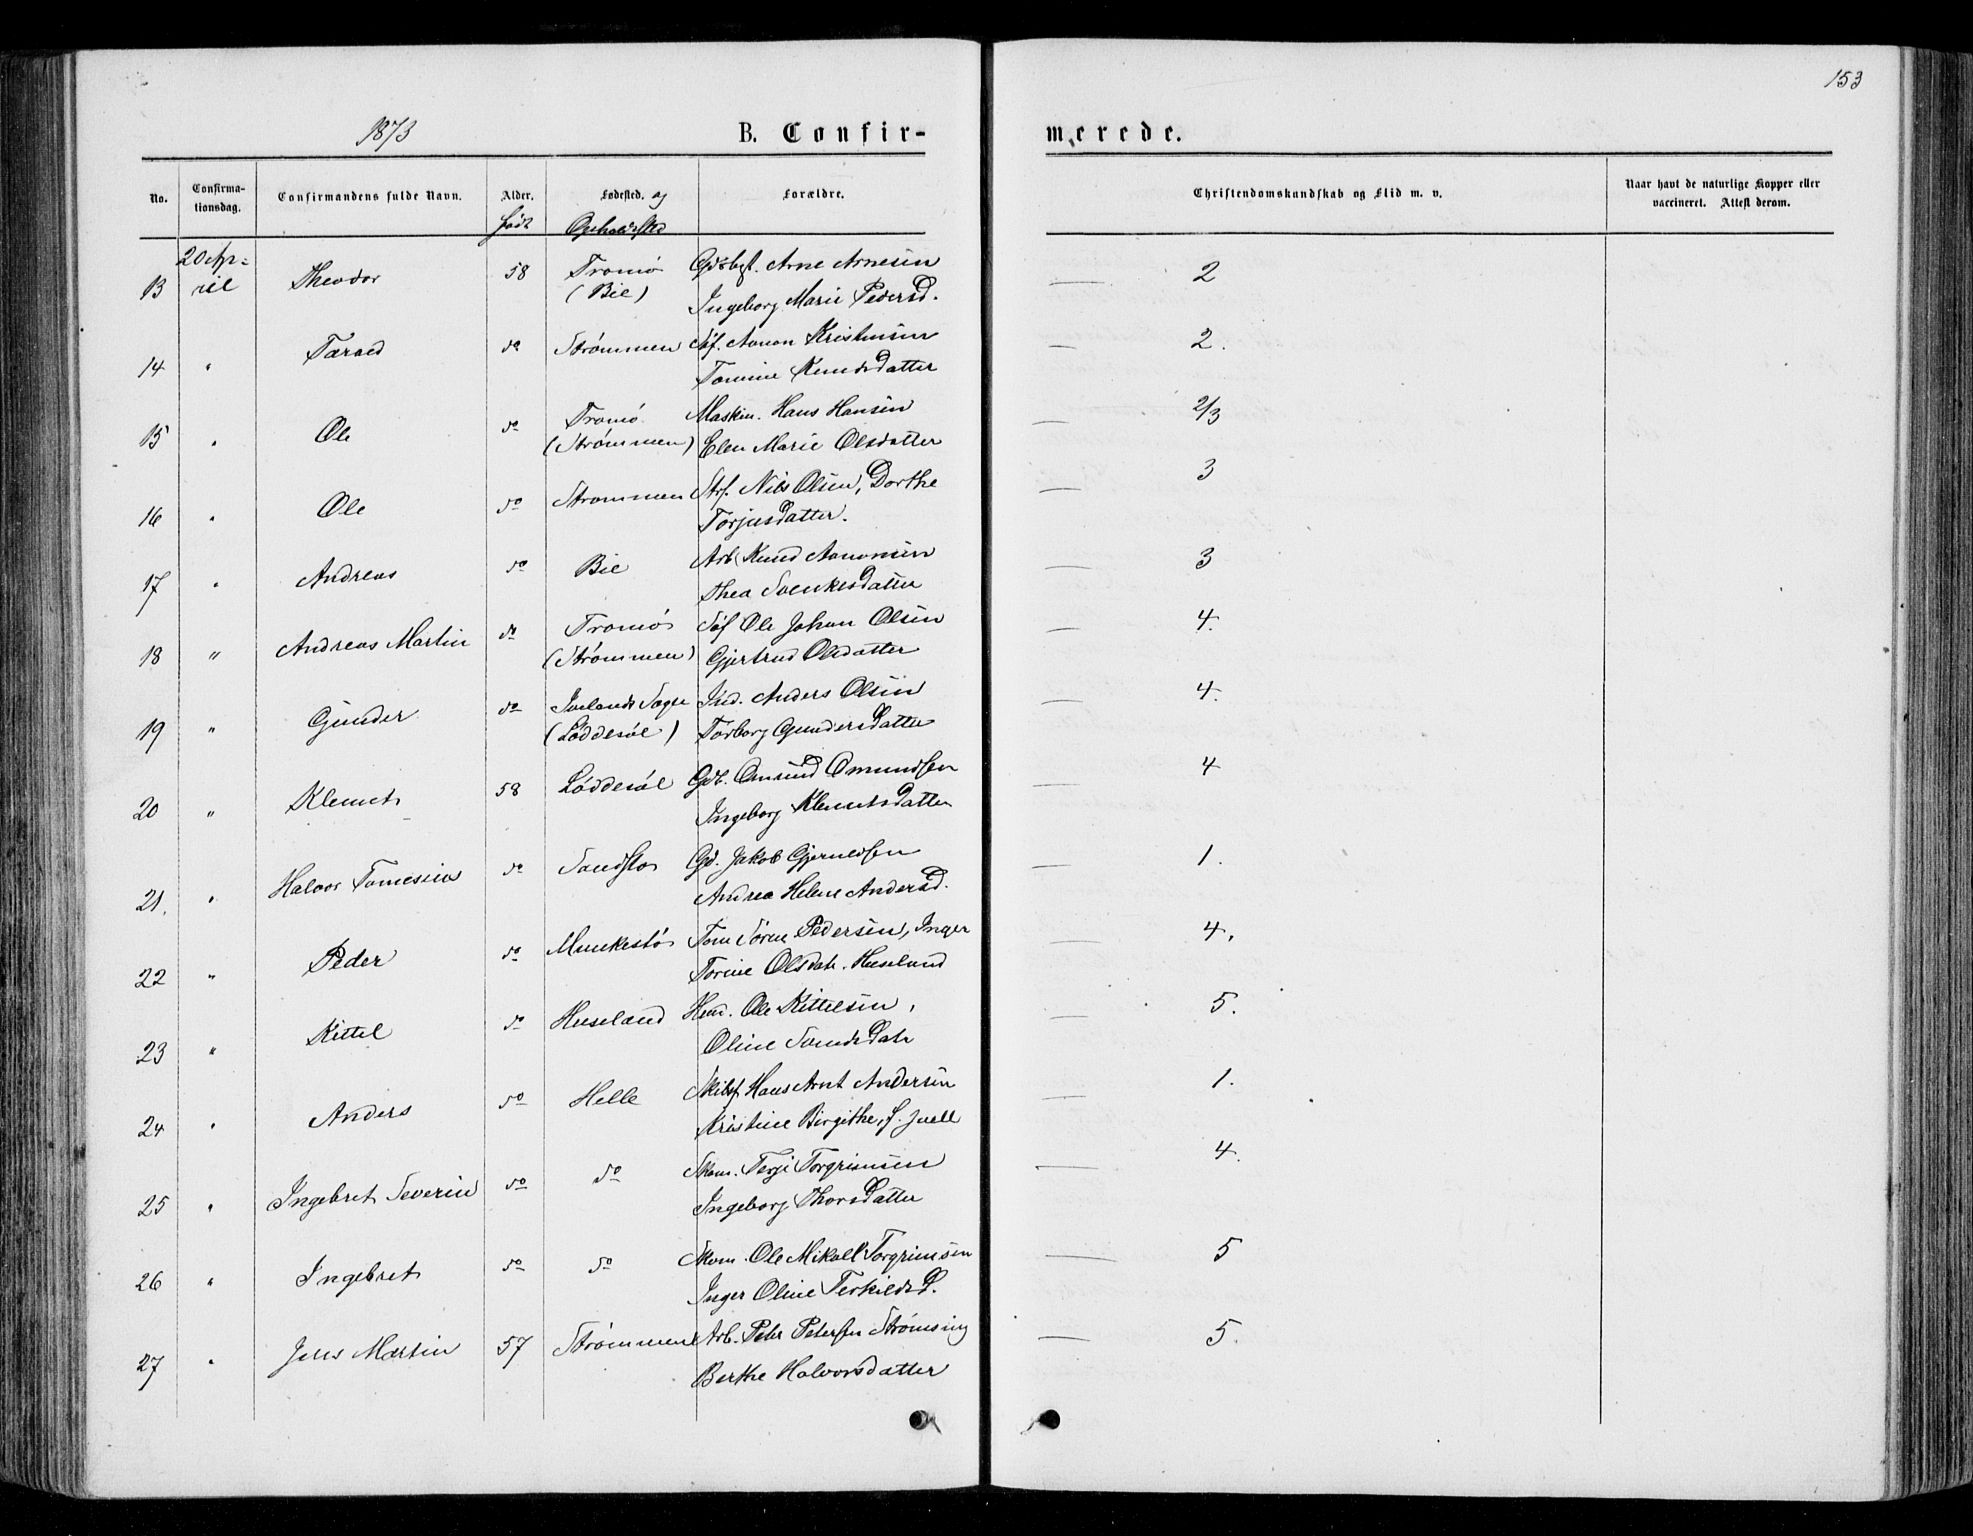 153
1873 B. Confir- merede.
No. Confirma- tionsdag. Confirmandens fulde Navn. Alder. Fødested. og Forældre. Christendomskundskab og Flid m. v. Naar havt de naturlige Kopper eller vaccineret. Attest derom.
født Opholdssted
20 Ap- Gdsbgt. Arne Arnesen
13 ril Theodor 58 Tromø (Bie) 2
Ingeborg Marie Pedersd.
14 " Tarald do Strømmen Søf. Aanon Kristensen 2.
Tomine Knudsdatter
15 " Ole do Tromø Maskin. Hans Hansen 2/3
(Strømmen) Elen Marie Olsdatter
16 " Ole do Strømmen Strf. Nils Olsen, Dorthe 3
Torjusdatter.
17 " Andreas do Bie Arb. Knud Aanonsen 3
Thea Svenkesdatter
18 " Andreas Martin do Tromø Søf Ole Johan Olsen 4.
(Strømmen) Gjertrud Olsdatter
19 " Gunder do Sogn Ind. Anders Olsen 4.
(Løddesøl) Torborg Gundersdatter
20 " Klemet 58 Løddesøl Gdb. Omund Omundsen 4
Ingeborg Klemetsdatter
21. " Halvor Tomesius do Sandstø Gd. Jakob Gjeruldsen 1.
Andrea Helene Andersd.
22 " Peder do Munkestø Tom Søren Pedersen, Inger 4.
Torine Olsdatr. Huseland
23 " Kittel do Huseland Hmd. Ole Kittelsen, 5.
Oline datr
24 " Anders do Helle Skibsf Hans Arnt Andersen 1.
Kristine Birgithe, f. Juell
25 " Ingebret Severin do do Skom. Terje Torgrimsen 4.
Ingeborg Thorsdatter
26 " Ingebret do do Skom. Ole Mikall Torgrimsen 5
Inger Oline Terkildsd.
27 " Jens Martin 57 Strømmen Arb. Peter Petersen Strømsing 5.
Berthe Halvorsdatter